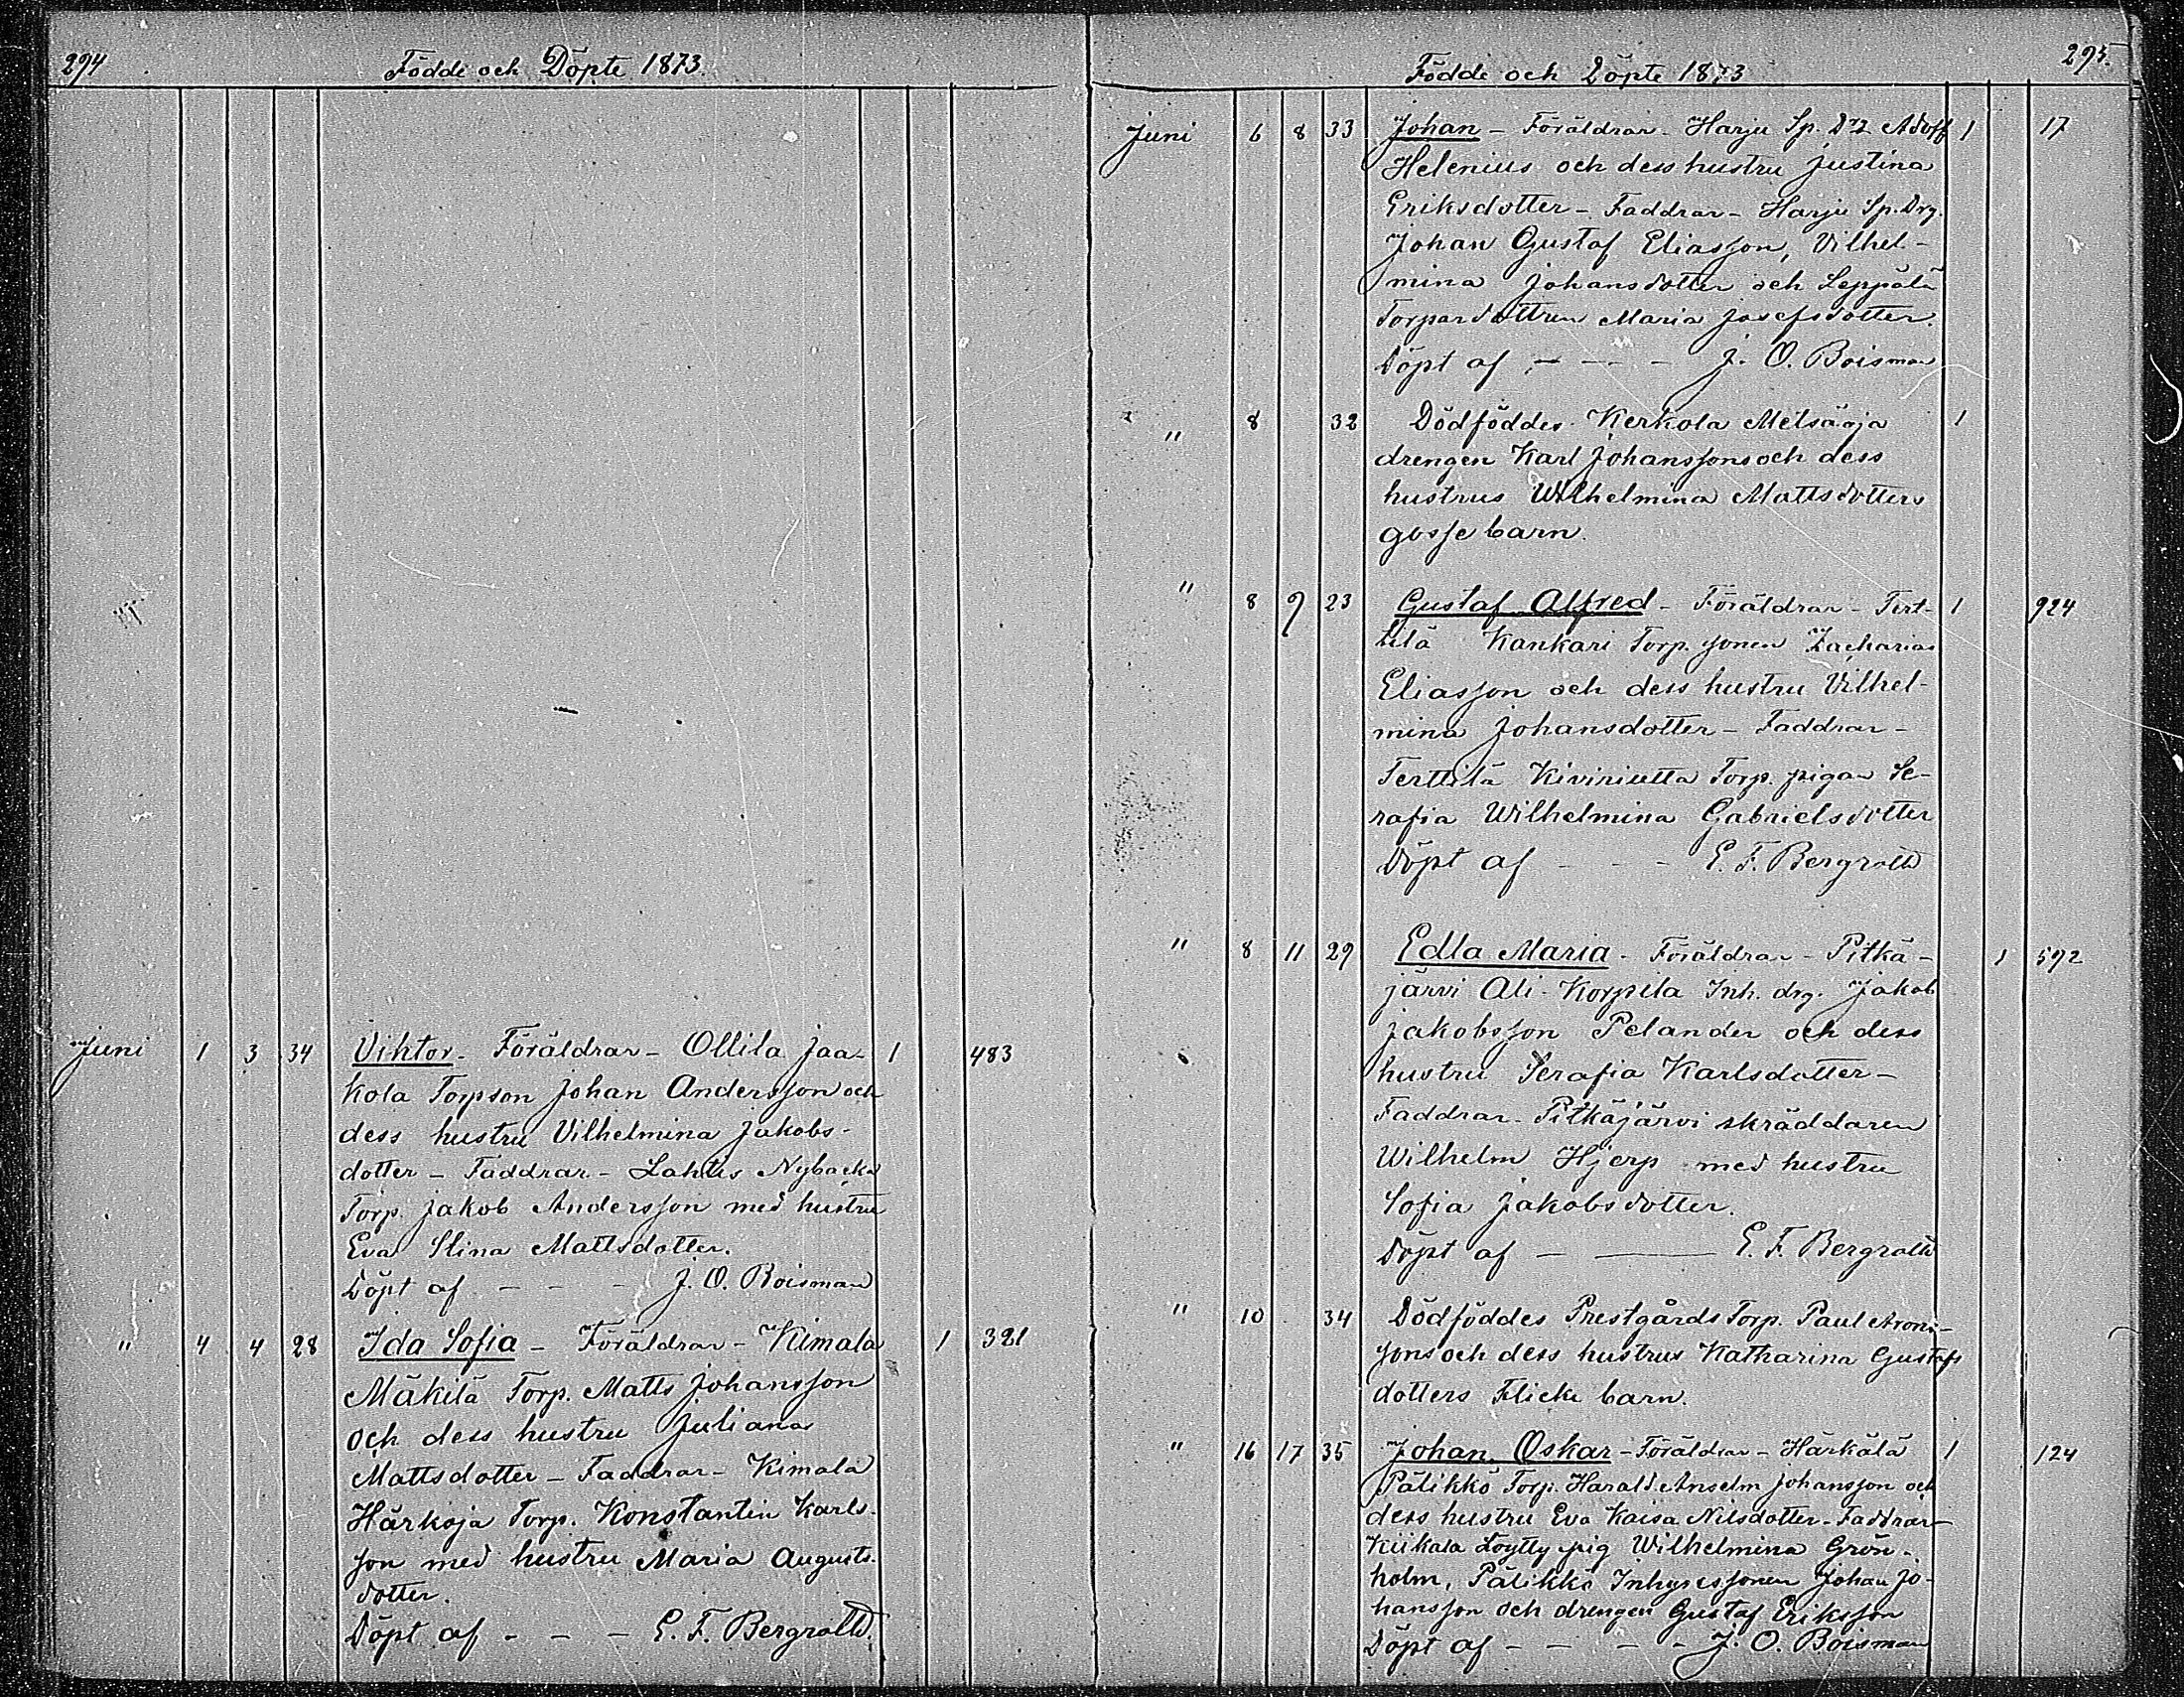 294
Födde och Döpte 1873.
Juni 1 3 34 Vihtor - Föräldrar - Ollila Jaa- 1 483
kola Torpson Johan Andersson och
dess hustru Vilhelmina Jakobs-
dotter - Faddrar - Lahtis Nybacka
Torp. Jakob Andersson med hustru
Eva Stina Mattsdotter.
Döpt af - - - J. O. Roisman
" 4 4 28 Ida Sofia - Föräldrar - Kimala 1 321
Mäkilä Torp. Matts Johansson
och dess hustru Juliana
Mattsdotter - Faddrar - Kimala
Härkoja Torp. Konstantin Karls-
son med hustru Maria Augusts-
dotter.
Döpt af - - - E. F. Bergroth.
295.
Födde och Döpte 1873
Juni 6 8 33 Johan - Föräldrar - Harju Sp. Drg Adolf 1 17
Helenius och dess hustru Justina
Eriksdotter - Faddrar - Harju Sp. Drg.
Johan Gustaf Eliasson, Vilhel-
mina Johansdotter och Leppälä
Torpardottren Maria Josefsdotter.
Döpt af - - - J. O. Boisman
" 8 32 Dödföddes Kerkola Metsäoja 1
drengen Karl Johanssons och dess
hustrus Wilhelmina Mattsdotters
gosse barn.
" 8 9 23 Gustaf Alfred - Föräldrar - Tert- 1 924
tilä Kankari Torp. sonen Zacharias
Eliasson och dess hustru Vilhel-
mina Johansdotter - Faddrar -
Terttilä Kiviniutta Torp. pigan Se-
rafia Wilhelmina Gabrielsdotter
Döpt af - - - E. F. Bergroth
" 8 11 29 Edla Maria - Föräldrar - Pitkä- 1 592
järvi Ali-Korpila Inh. drg. Jakob
Jakobsson Pelander och dess
hustru Serafia Karlsdotter -
Faddrar - Pitkäjärvi skräddaren
Wilhelm Hjerp med hustru
Sofia Jakobsdotter.
Döpt af - - E. F. Bergroth
" 10 34 Dödföddes Prestgårds Torp. Paul Arons-
sons och dess hustrus Katharina Gustafs
dotters Flicke barn.
" 16 17 35 Johan Oskar - Föräldrar - Härkälä 1 124
Pälikkö Torp. Harald Anselm Johansson och
dess hustru Eva Kaisa Nilsdotter - Faddrar -
Kiikala Löytty pig Wilhelmina Grön-
holm, Pälikkö Inhysessonen Johan Jo-
hansson och drengen Gustaf Eriksson
Döpt af - - - - J. O. Boisman